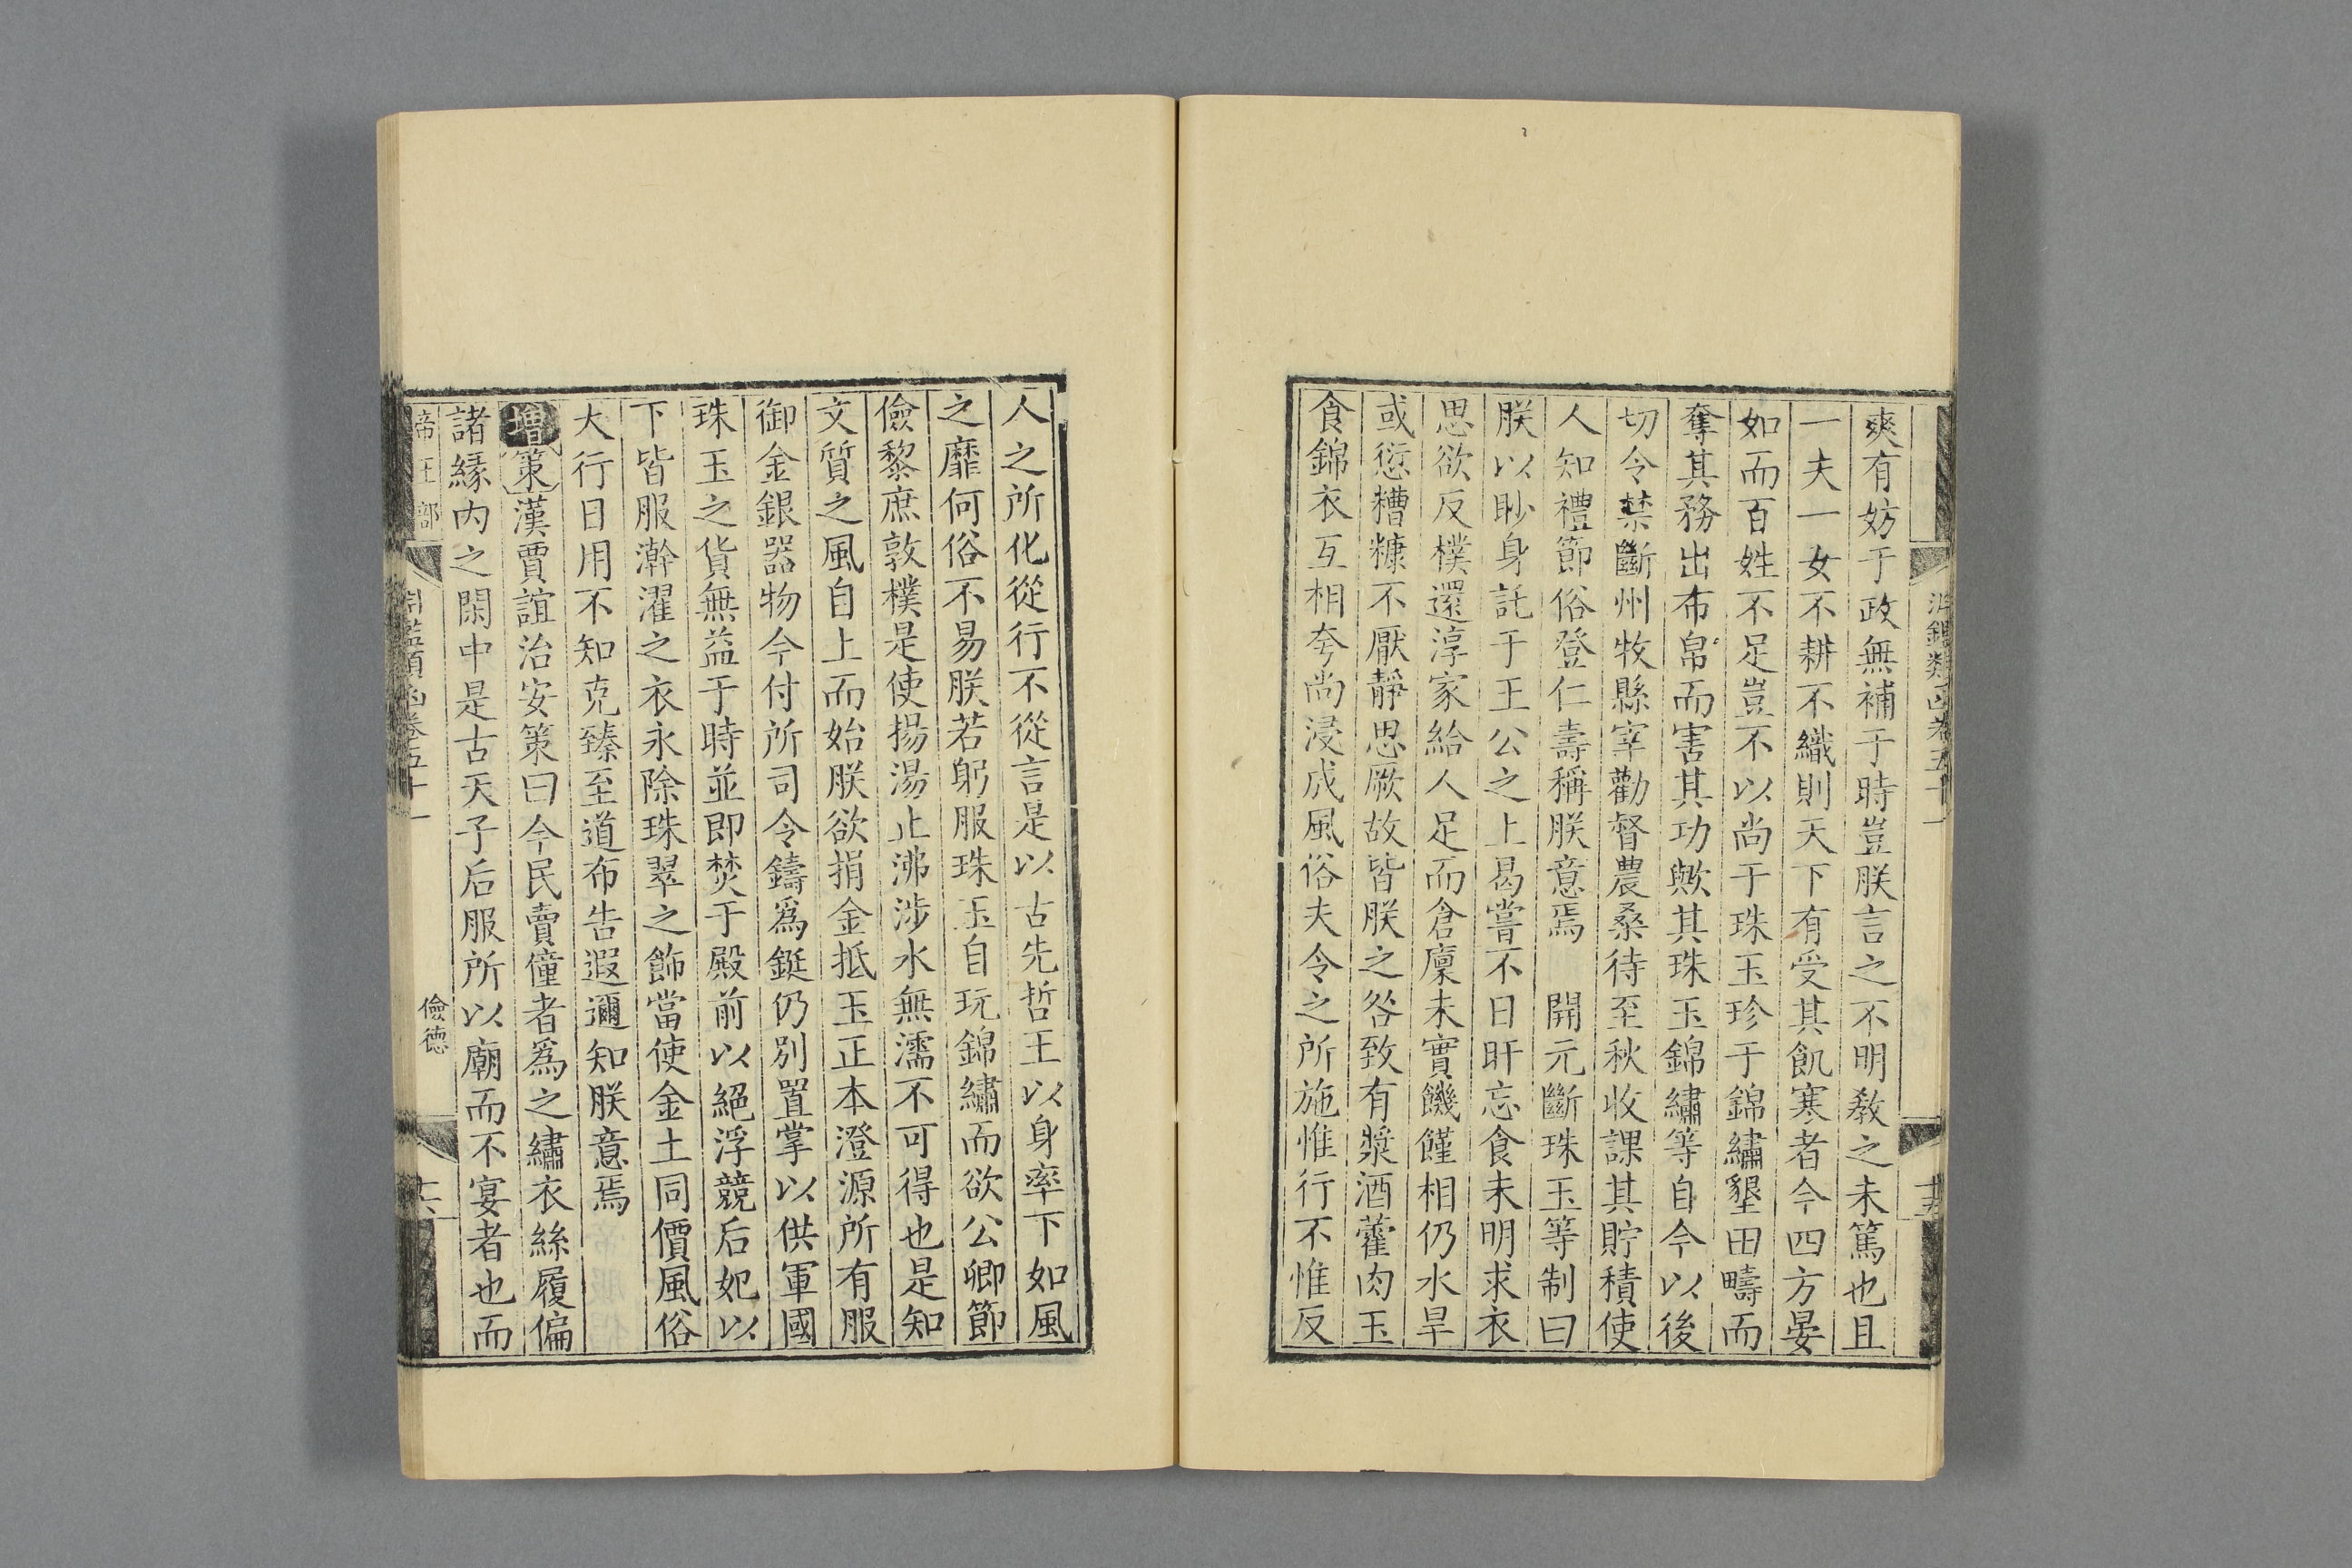 淵鑑類函卷五十一
十五
爽有妨于政無補于時豈朕言之不明教之未篤也且
一夫一女不耕不織則天下有受其飢寒者今四方晏
如而百姓不足豈不以尚于珠玉珍于錦繡墾田疇而
奪其務出布帛而害其功歟其珠玉錦繡等自今以後
切令禁斷州牧縣宰勸督農桑待至秋收課其貯積使
人知禮節俗登仁壽稱朕意焉　開元斷珠玉等制曰
朕以眇身託于王公之上曷嘗不日旰忘食未明求衣
思欲反樸還淳家給人足而倉廩未實饑饉相仍水旱
或愆糟糠不厭靜思厥故皆朕之咎致有漿酒藿肉玉
食錦衣互相夸尚浸成風俗夫令之所施惟行不惟反
人之所化從行不從言是以古先哲王以身率下如風
之靡何俗不易朕若躬服珠玉自玩錦繡而欲公卿節
儉黎庶敦樸是使揚湯止沸涉水無濡不可得也是知
文質之風自上而始朕欲捐金抵玉正本澄源所有服
御金銀器物今付所司令鑄爲鋌仍別置掌以供軍國
珠玉之貨無益于時並即焚于殿前以絕浮競后妃以
下皆服澣濯之衣永除珠翠之飾當使金土同價風俗
大行日用不知克臻至道布告遐邇知朕意焉
增策漢賈誼治安策曰今民賣僮者爲之繡衣絲履偏
諸緣內之閑中是古天子后服所以廟而不宴者也而
帝王部
淵鑑類函卷五十一
儉德
十六